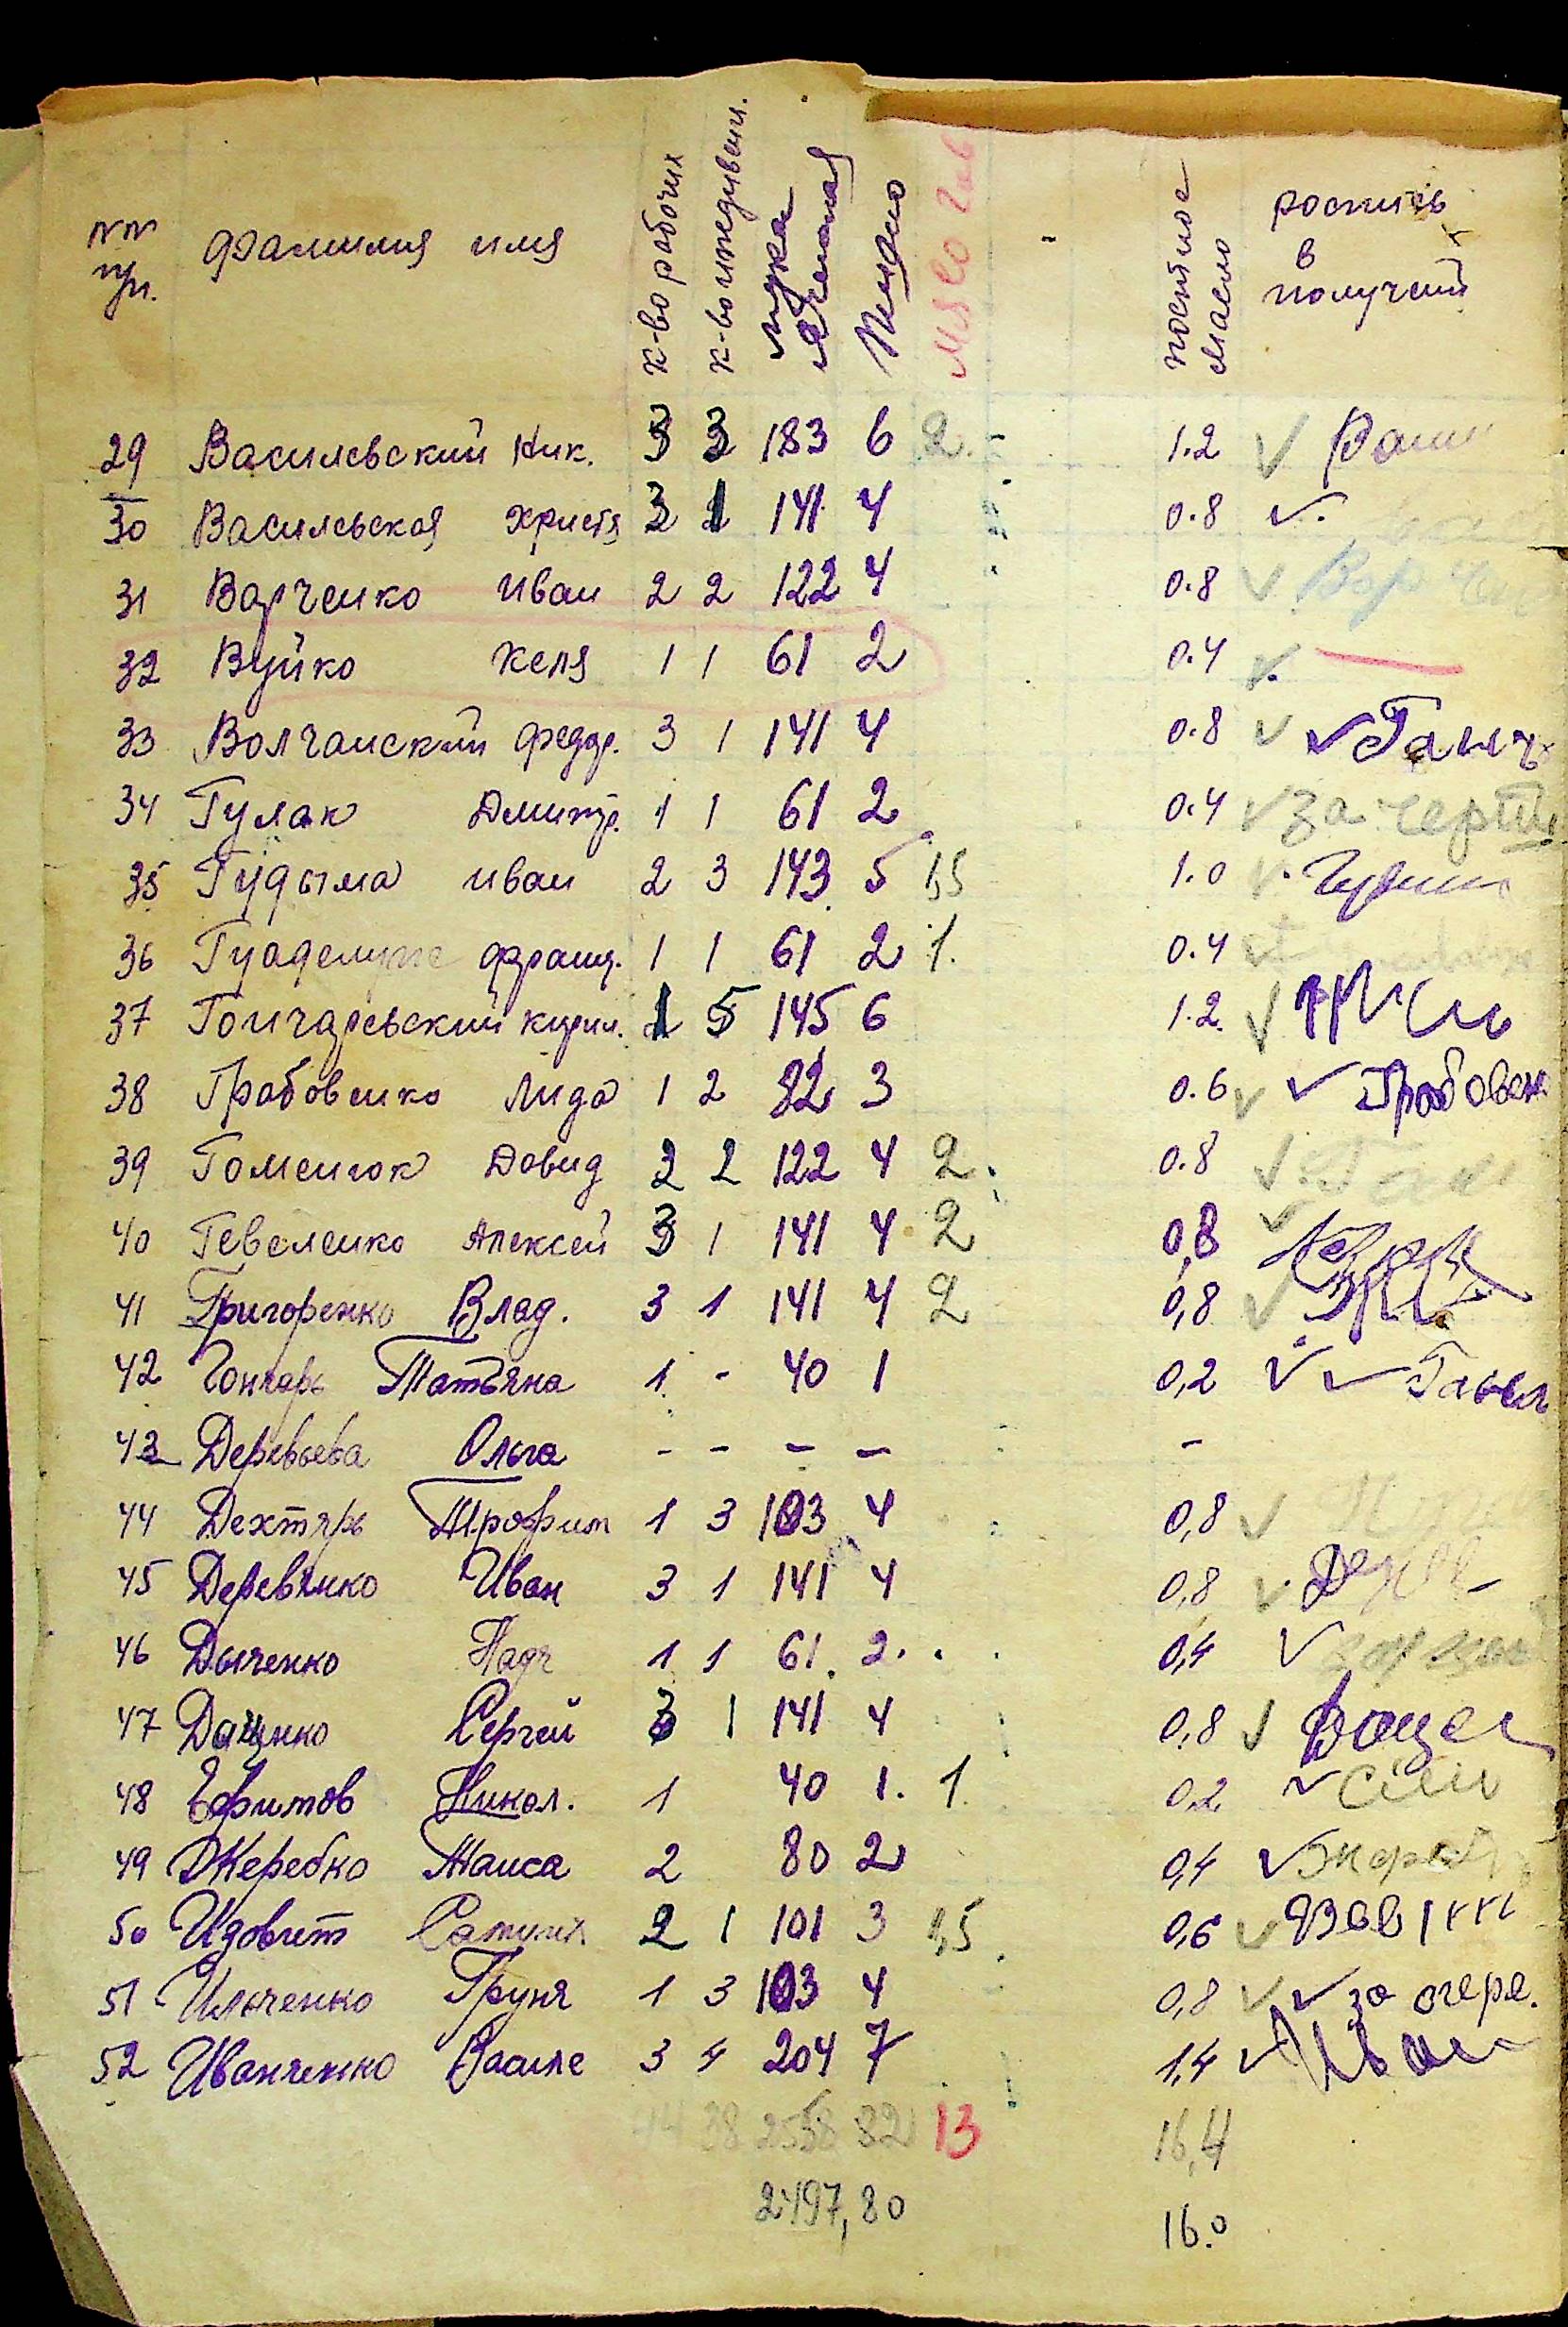 NN пп. фамилия имя к-во рабочих к-во иждивен. мука яченная Пшоно мясо гов постное масло роспись в получений
29 Василевский Ник. 3 3 183 6 2. - 1.2
30 Василевская Христя 3 1 141 4 0.8
31 Варченко Иван 2 2 122 4 0.8
32 Вуйко Келя 1 1 61 2 0.4
33 Волчанский Федор. 3 1 141 4 0.8
34 Гулак Дмитр. 1 1 61 2 0.4 за
35 Гудыма Иван 2 3 143 5 1,5 1.0
36 Франц. 1 1 61 2 1. 0.4
37 Гончаревский Кирил. 1 5 145 6 1.2
38 Грабовенко Лида 1 2 82 3 0.6 Грабовен
39 Гоменюк Довид 2 2 122 4 2. 0.8
40 Гевеленко Алексей 3 1 141 4 2 0,8
41 Григоренко Влад. 3 1 141 4 2 0,8
42 Гончарь Татьяна 1. - 40 1 0,2
43 Деревьева Ольга - - - - -
44 Дехтярь Трофим 1 3 103 4 0,8
45 Деревянко Иван 3 1 141 4 0,8
46 Дьяченко Надя 1 1 61. 2. 0,4
47 Даценко Сергей 3 1 141 4 0,8
48 Ефимов Никол. 1 40 1. 1. 0,2
49 Жеребко Таиса 2 80 2 0,4
50 Идовит 2 1 101 3 1,5 0,6
51 Ильченко Груня 1 3 103 4 0,8 за очере.
52 Иванченко Василе 3 4 204 7 1,4 Иван
44 38 2558 82 13 16,4
2497, 80 16.0